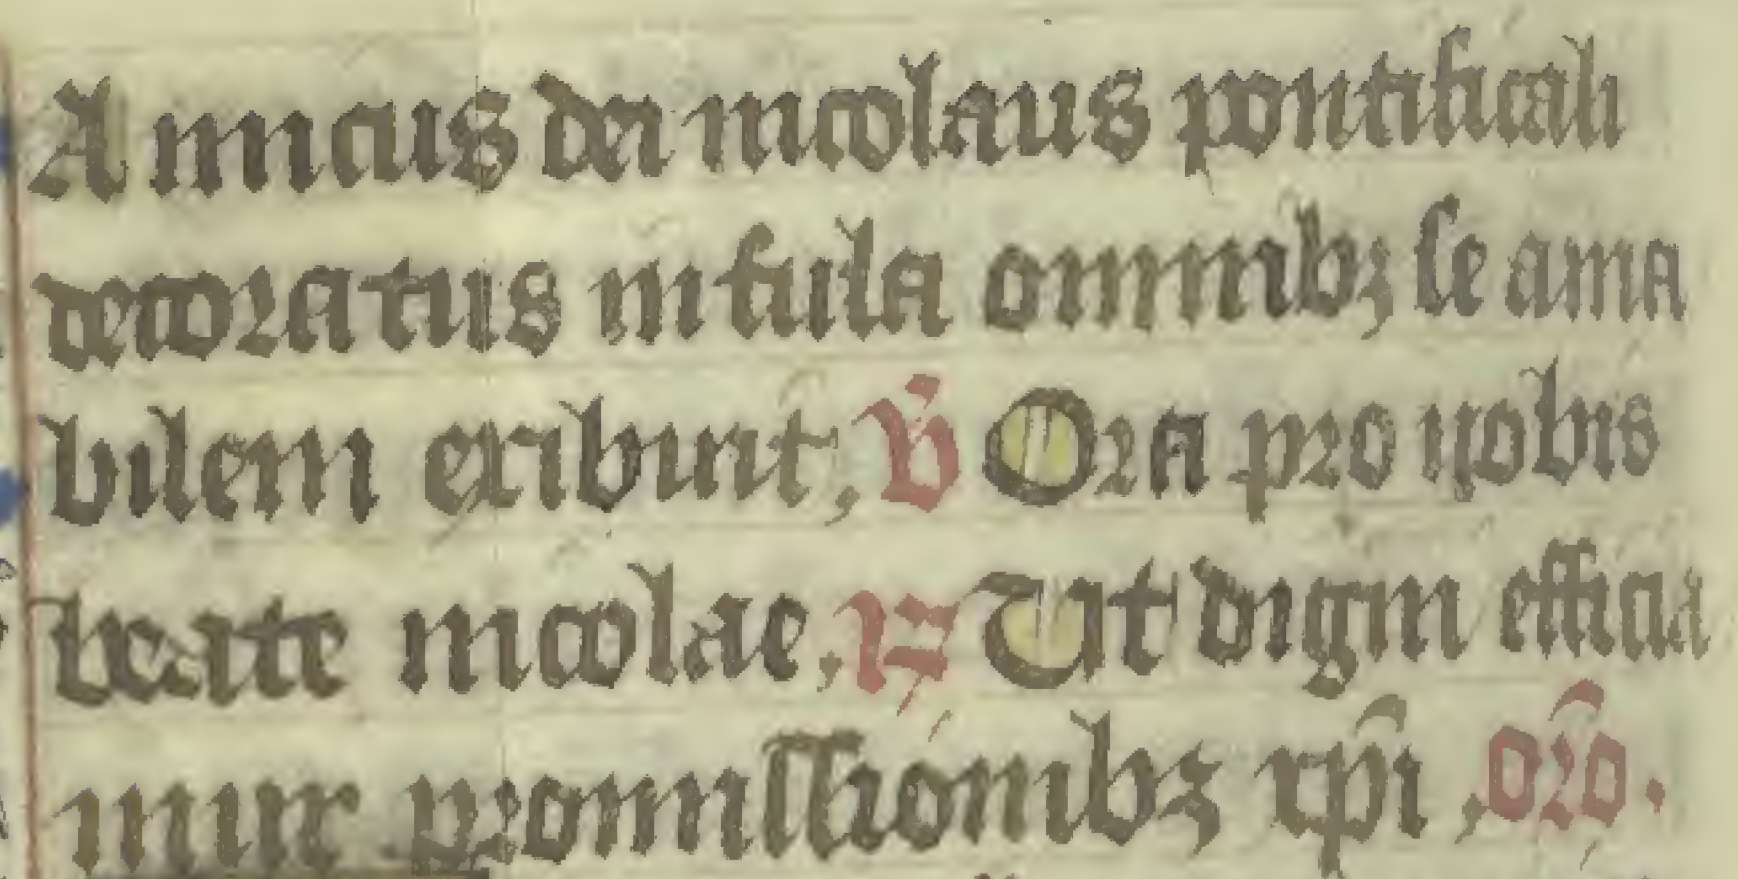 Amicus dei nicolaus pontificali
decoratus infula omnibꝫ se ama
bilem exibuit, v̾ Ora pro nobis
beate nicolae, ℟ Ut digni efficia
mur promissionibꝫ xp̄i, or̄o.